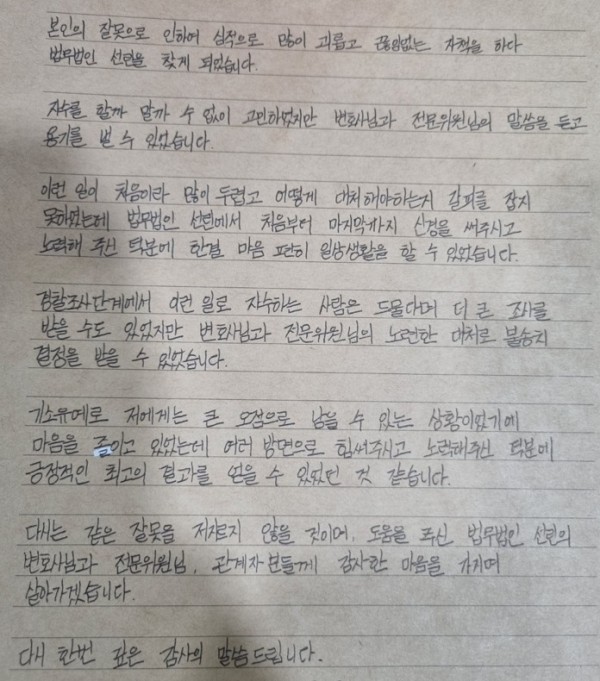 본인의 잘못으로 인하여 심적으로 많이 괴롭고 끊임없는 자책을 하다
법무법인 선린을 찾게 되었습니다.
자수를 할까 말까 수 없이 고민하였지만 변호사님과 전문위원님의 말씀을 듣고
용기를 낼 수 있었습니다.
이런 일이 처음이라 많이 두렵고 어떻게 대처해야하는지 갈피를 잡지
못하였는데 법무법인 선린에서 처음부터 마지막까지 신경을 써주시고
노력해 주신 덕분에 한결 마음 편히 일상생활을 할 수 있었습니다.
경찰조사단계에서 이런 일로 자수하는 사람은 드물다며 더 큰 조사를
받을 수도 있었지만 변호사님과 전문위원님의 노련한 대처로 불송치
결정을 받을 수 있었습니다.
기소유예로 저에게는 큰 오점으로 남을 수 있는 상황이었기에
마음을 졸이고 있었는데 여러 방면으로 힘써주시고 노력해주신 덕분에
긍정적인 최고의 결과를 얻을 수 있었던 것 같습니다.
다시는 같은 잘못을 저지르지 않을 것이며, 도움을 주신 법무법인 선린의
변호사님과 전문위원님, 관계자분들께 감사한 마음을 가지며
살아가겠습니다.
다시 한번 깊은 감사의 말씀 드립니다.